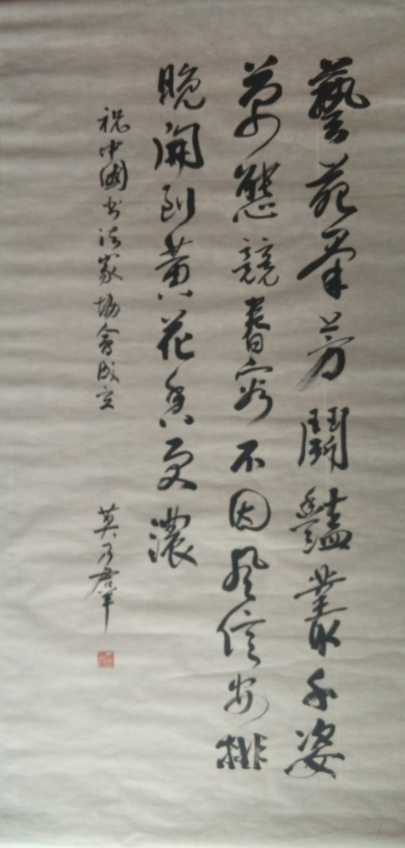 藝苑羣芳鬪豔叢千姿
萬態競春容不因風信安排
晚開到黄花香更濃
祝中國书法家協會成立
莫乃羣